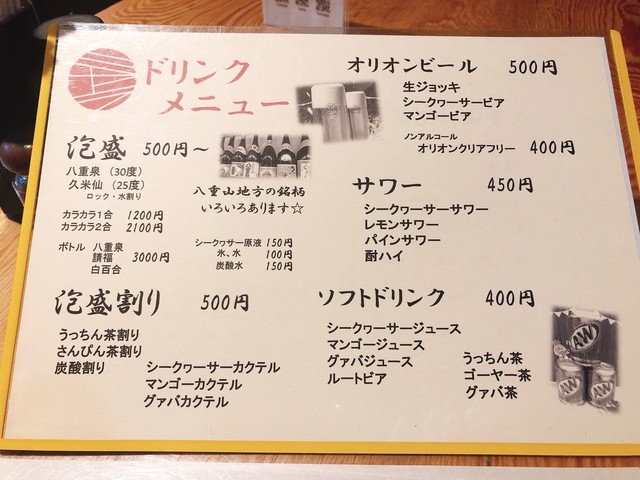 ドリンク
メニュー
泡盛 500円～
八重泉 （30度）
久米仙 （25度）
ロック・水割り
カラカラ1合 1200円
カラカラ2合 2100円
ボトル 八重泉
請福 3000円
白百合
八重山地方の銘柄
いろいろあります☆
シークヮサー原液 150円
氷、水 100円
炭酸水 150円
泡盛割り 500円
うっちん茶割り
さんぴん茶割り
炭酸割り
シークヮーサーカクテル
マンゴーカクテル
グァバカクテル
オリオンビール 500円
生ジョッキ
シークヮーサービア
マンゴービア
ノンアルコール
オリオンクリアフリー 400円
サワー 450円
シークヮーサーサワー
レモンサワー
パインサワー
酎ハイ
ソフトドリンク 400円
シークヮーサージュース
マンゴージュース
グァバジュース
ルートビア
うっちん茶
ゴーヤー茶
グァバ茶
A&W
A&W
A&W